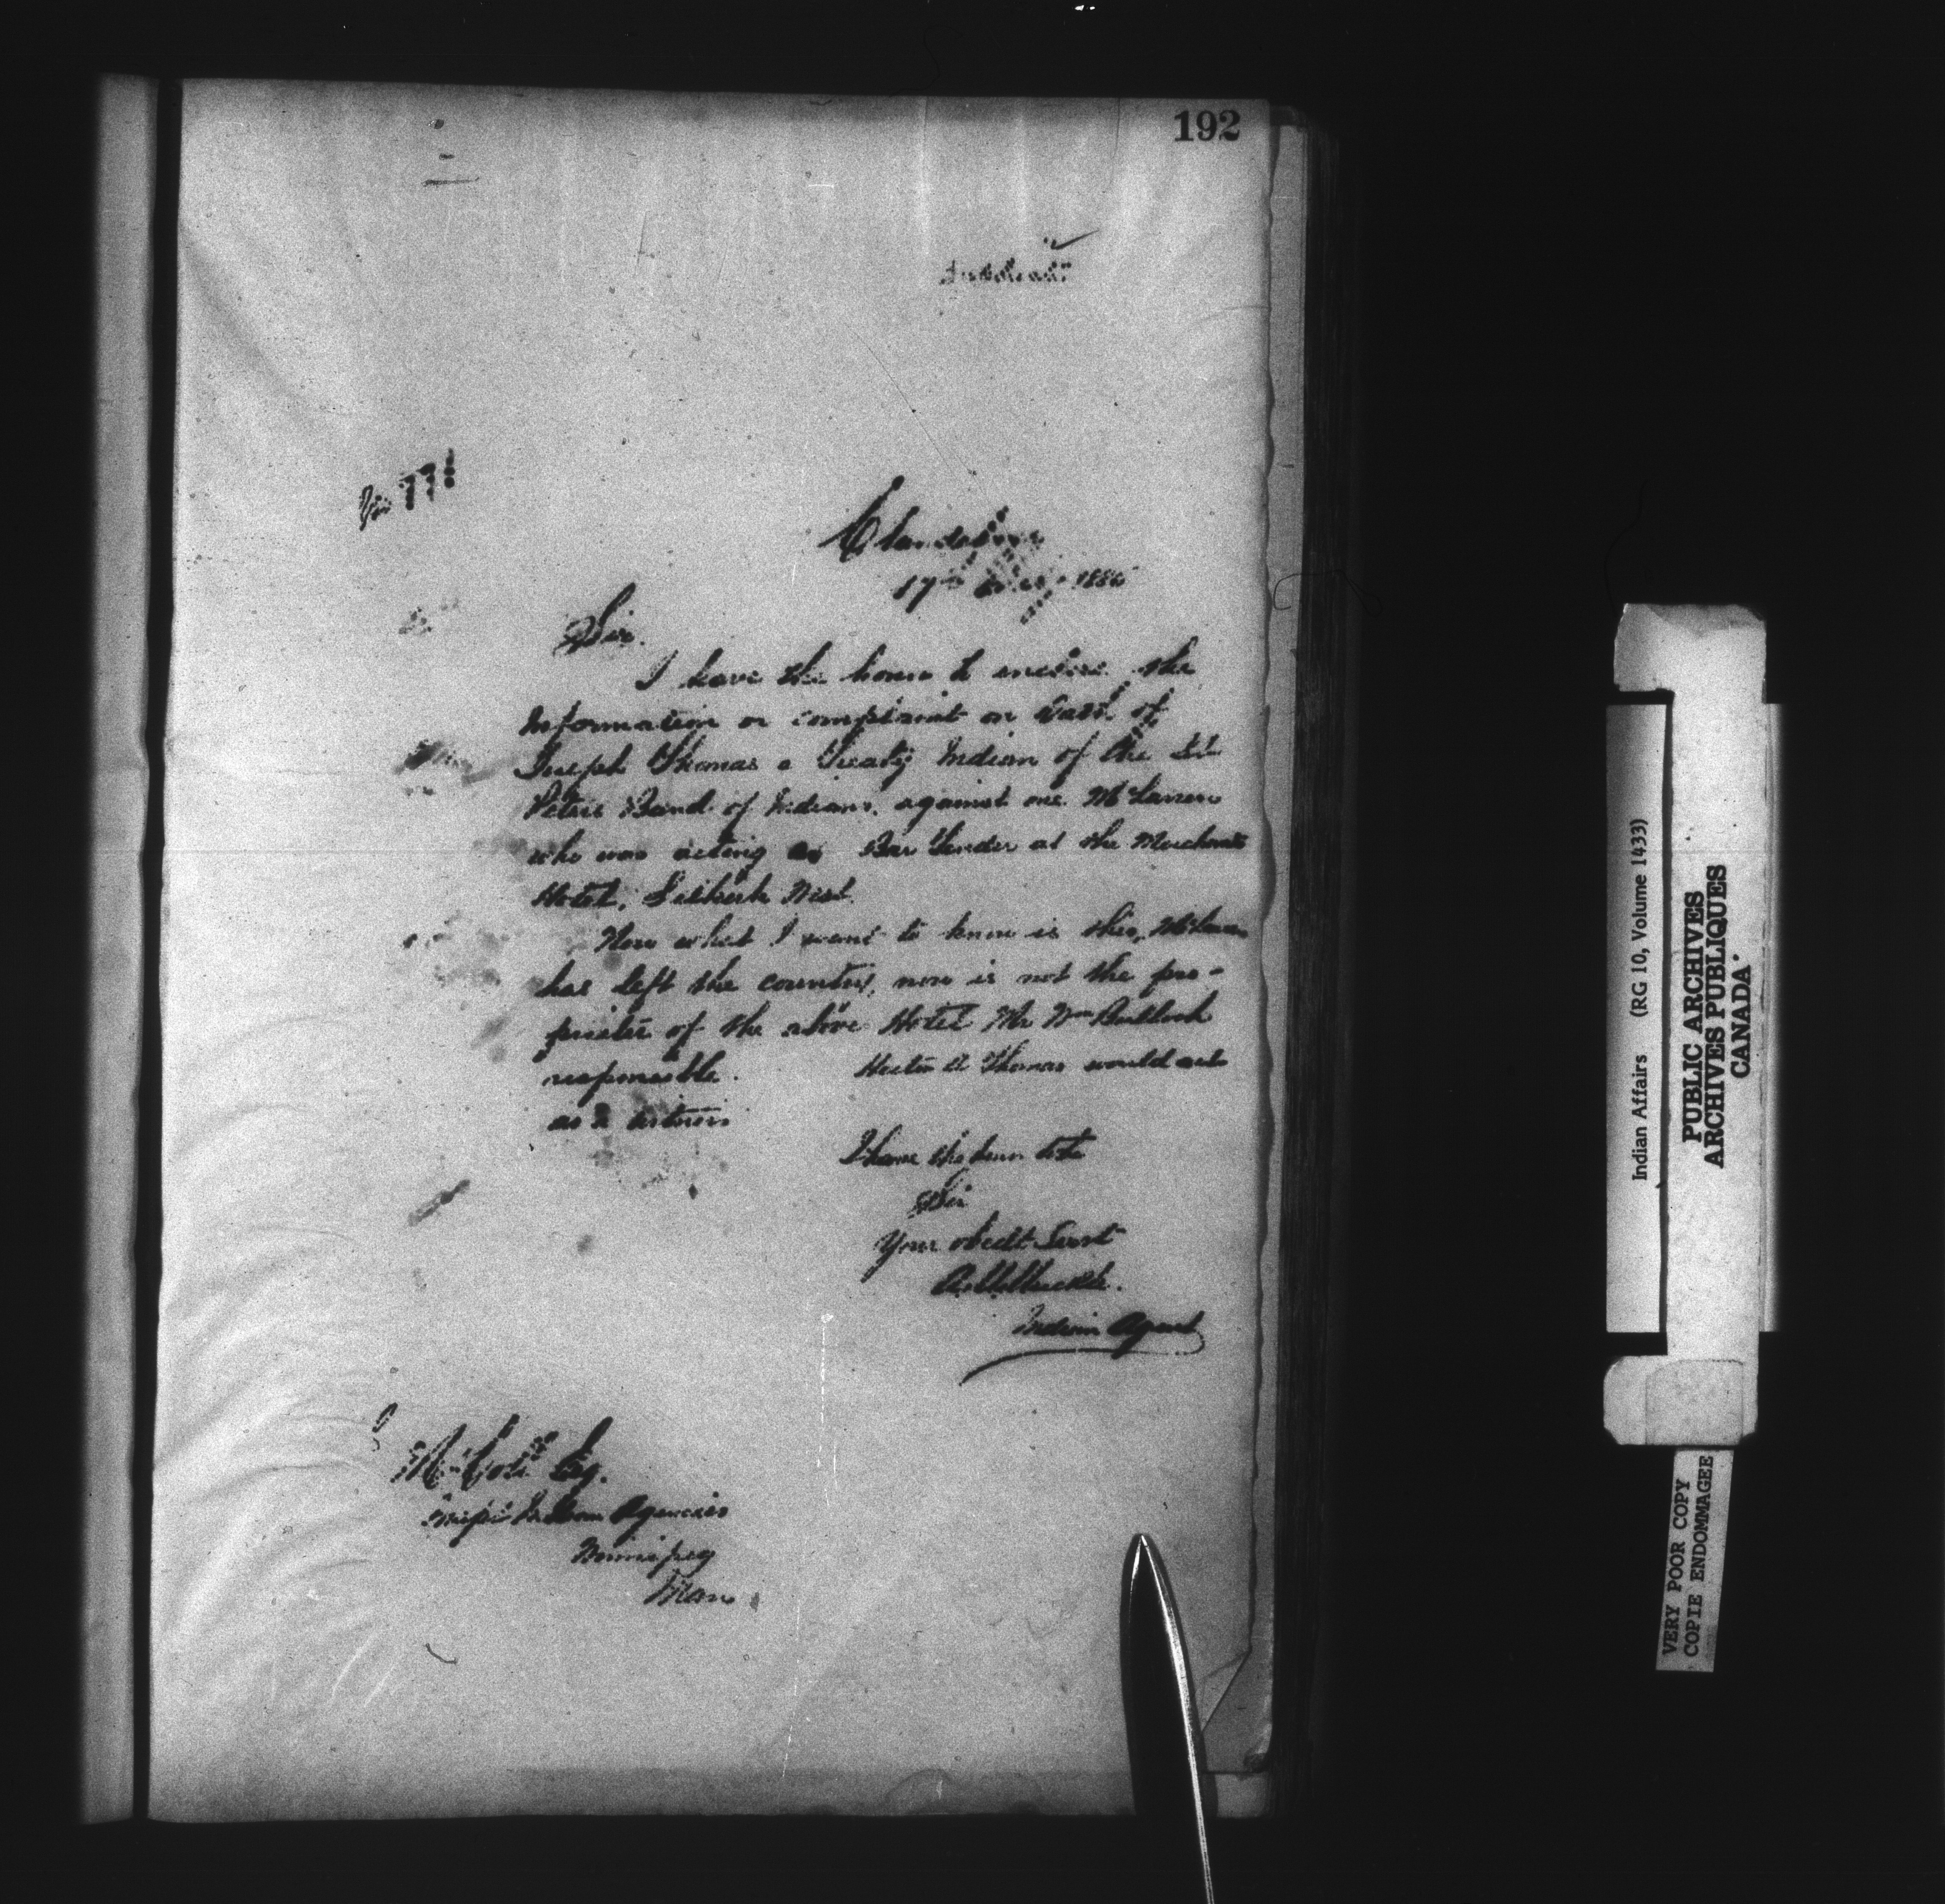 192
No 771
Clandeboye
17th 1886
Sir.
I have the honor to enclose the
Information or complaint on oath of
Joseph Thomas a Treaty Indian of the St
Peters Band of Indians, against one McLaren
who was acting as Bar Tender at the Merchants
Hotel, Selkirk West.
Now what I want to know is this, McLaren
has left the country, now is not the pro-
prietor of the above Hotel Mr Wm Bullock
responsible. Hector Thomas would act
as a witness
I have the honor to be
Sir
Your obedt Servt
A. M. Muckle.
Indian Agent
Esq.
Inspr Indian Agencies
Winnipeg
Man
Indian Affairs (RG 10, Volume 1433)
PUBLIC ARCHIVES
ARCHIVES PUBLIQUES
CANADA
VERY POOR COPY
COPIE ENDOMMAGEE